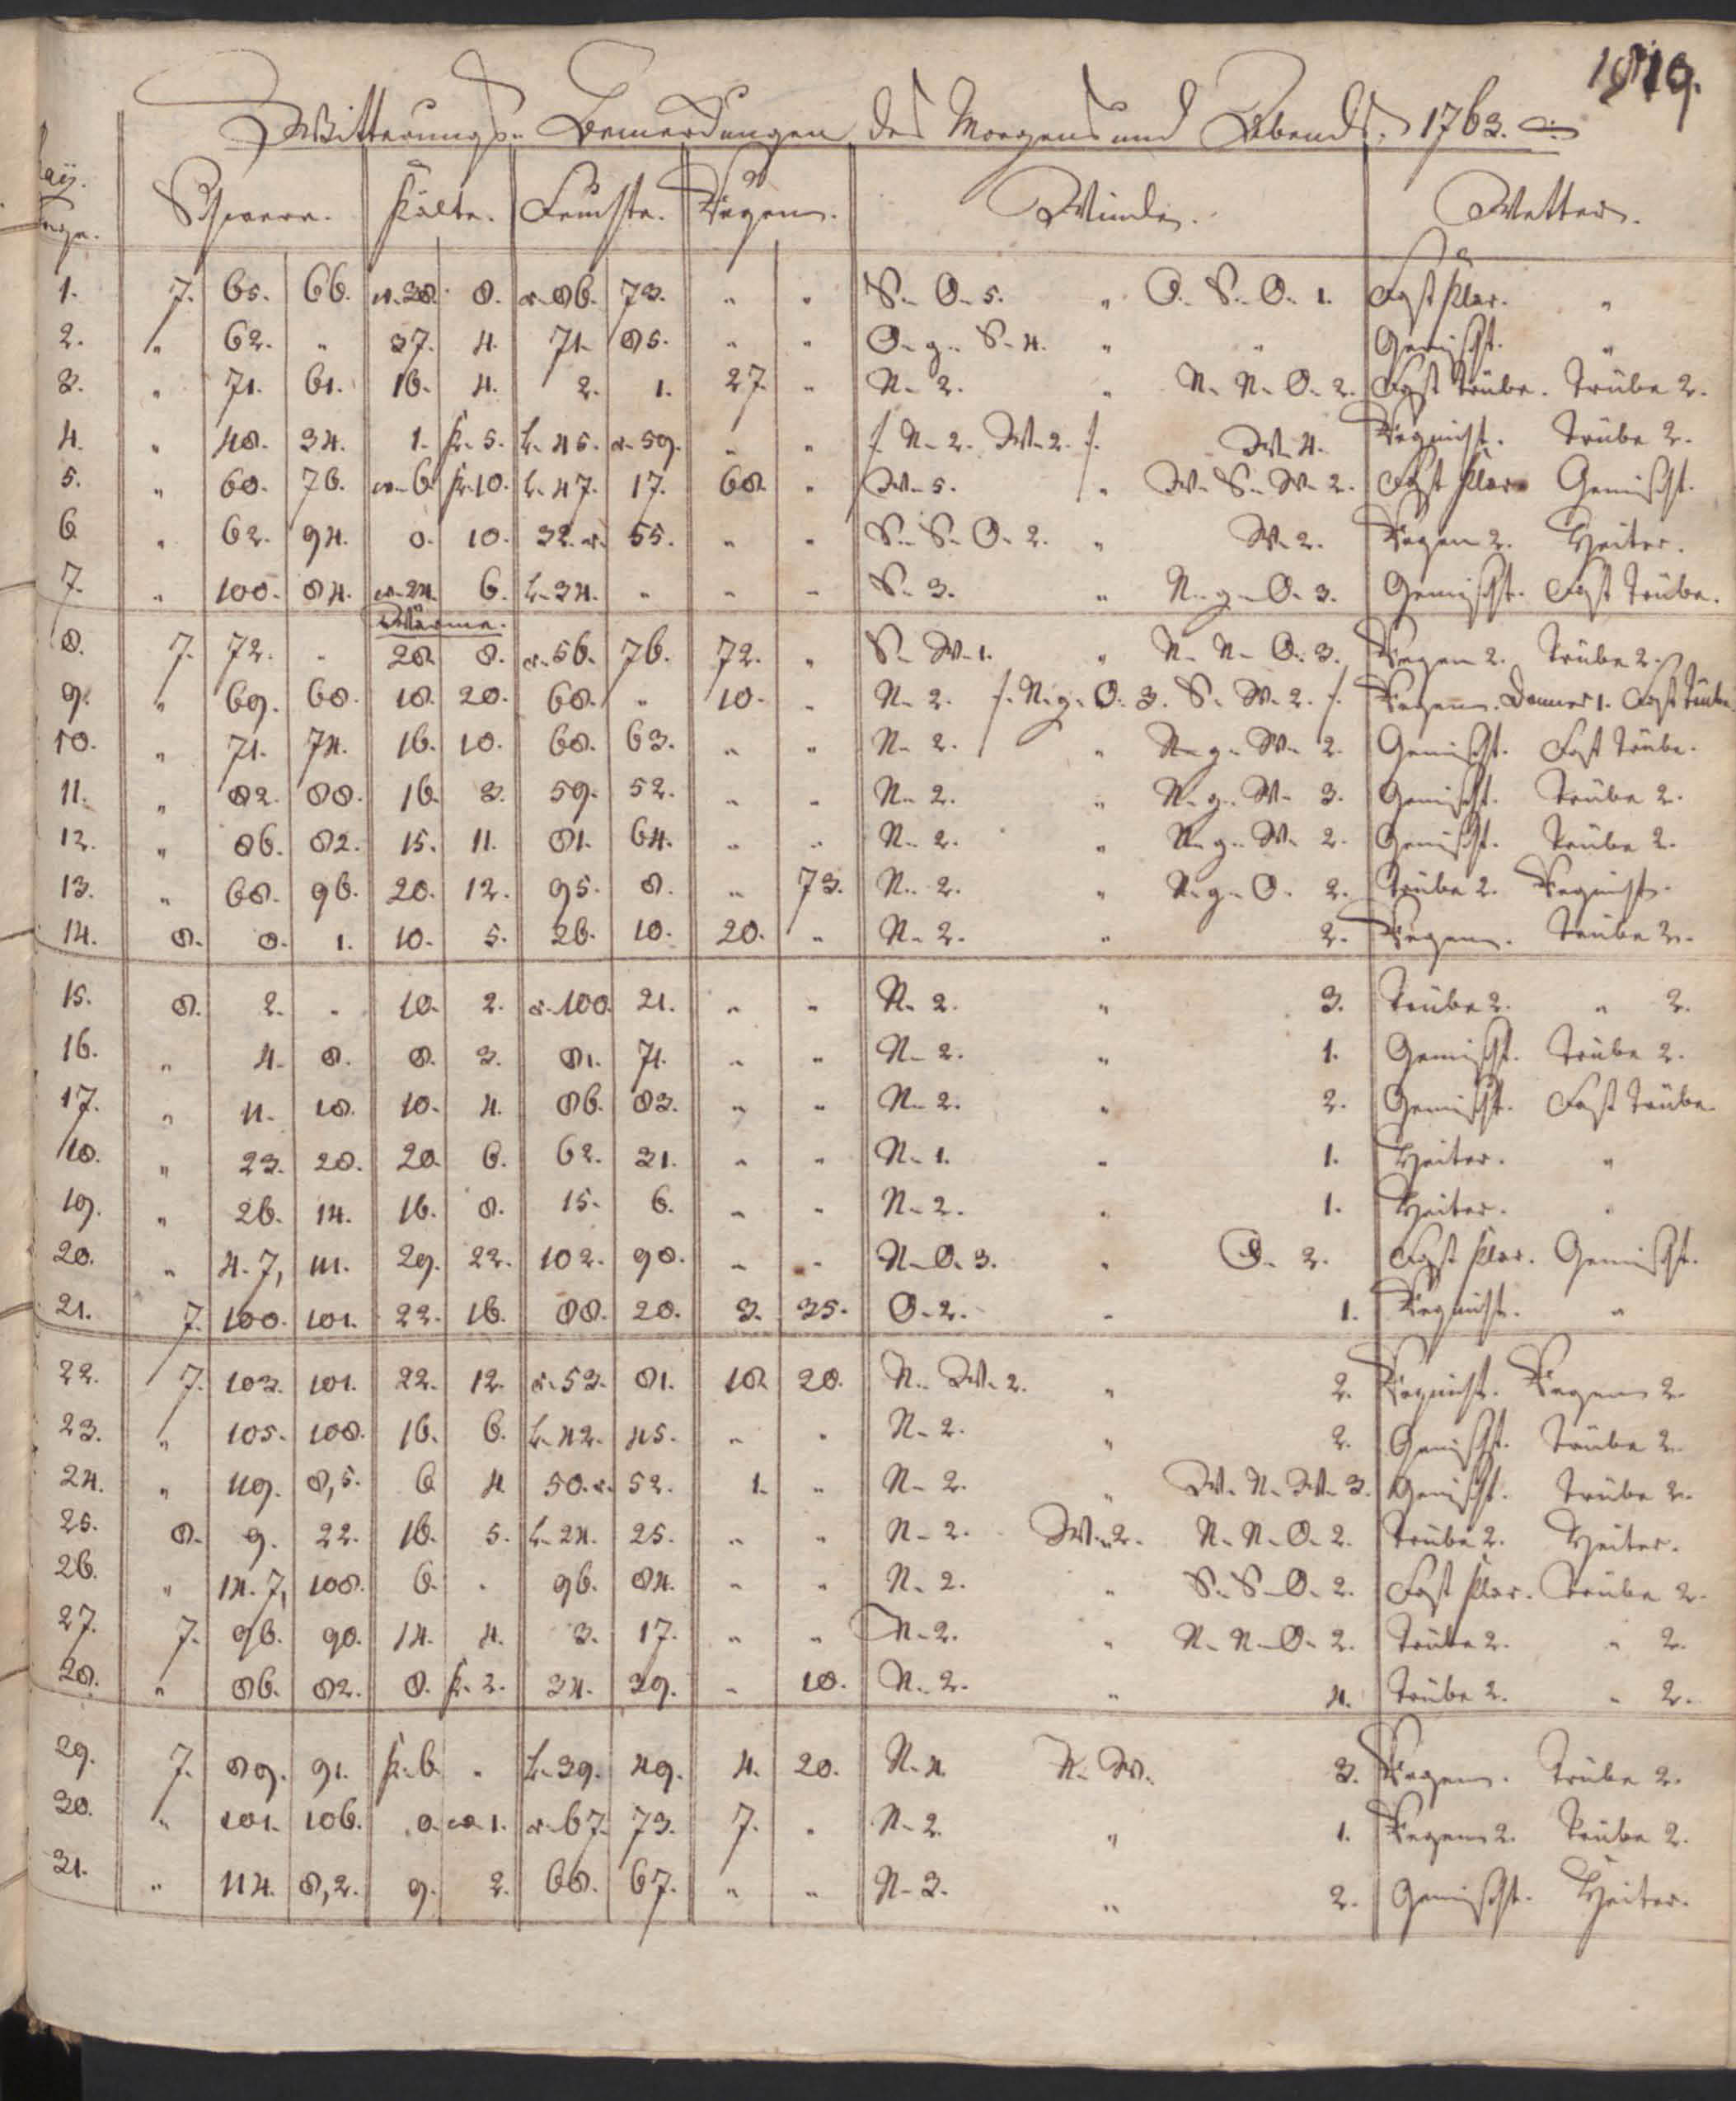 1819.
Witterungs- Bemerckungen des Morgens und Abends. 1763.
May. Tage. Schwere. Kälte. Feuchte. Regen. Winde. Wetter.
1. 7. 65. 66. w. 38. 8. r. 86. 73. " " S. O. 5. " O. S. O. 1. Fast klar. "
2. " 62. " 37. 4. 71. 85. " " O. g. S. 4. " " Gemischt. "
3. " 71. 61. 16. 4. 2. 1. 27. " N. 2. " N. N. O. 2. Fast trübe. Trübe 2.
4. " 48. 34. 1. k. 5. L. 45. r. 59. " " f. N. 2. W. 2. f. W. 4. Regnicht. Trübe 2.
5. " 60. 76. w. 6. k. 10. L. 47. 17. 68. " W. 5. " W. S. W. 2. Fast klar. Gemischt.
6. " 62. 94. 0. 10. 32. r. 55. " " S. S. O. 2. " W. 2. Regen 2. Heiter.
7. " 100. 84. w. 24. 6. L. 34. " " " S. 3. " N. g. O. 3. Gemischt. Fast trübe.
Wärme.
8. 7. 72. " 28. 8. r. 56. 76. 72. " S. W. 1. " N. N. O. 3. Regen 2. Trübe 2.
9. " 69. 68. 18. 20. 68. " 10. " N. 2. f. N. g. O. 3. S. W. 2. f. Regen. Donner 1. Fast trübe
10. " 71. 74. 16. 10. 68. 63. " " N. 2. " N. g. W. 2. Gemischt. Fast trübe.
11. " 82. 88. 16. 3. 59. 52. " " N. 2. " N. g. W. 3. Gemischt. Trübe 2.
12. " 86. 82. 15. 11. 81. 64. " " N. 2. " N. g. W. 2. Gemischt. Trübe 2.
13. " 68. 96. 20. 12. 95. 8. " 73. N. 2. " N. g. O. 2. Trübe 2. Regnicht.
14. 8. 0. 1. 10. 5. 26. 10. 20. " N. 2. " 2. Regen. Trübe 2.
15. 8. 2. " 10. 2. r. 100. 21. " " N. 2. " 3. Trübe 2. " 2.
16. " 4. 8. 8. 3. 81. 71. " " N. 2. " 1. Gemischt. Trübe 2.
17. " 11. 18. 10. 4. 86. 83. " " N. 2. " 2. Gemischt. Fast trübe
18. " 23. 28. 20. 6. 62. 31. " " N. 1. " 1. Heiter. "
19. " 26. 14. 16. 8. 15. 6. " " N. 2. " 1. Heiter. "
20. " 4. 7, 111. 29. 22. 102. 98. " " N. O. 3. " O. 2. Fast klar. Gemischt.
21. 7. 100. 101. 22. 16. 88. 20. 3. 35. O. 2. " 1. Regnicht. "
22. 7. 103. 101. 22. 12. r. 53. 81. 18. 20. N. W. 2. " 2. Regnicht. Regen 2.
23. " 105. 108. 16. 6. L. 42. 45. " " N. 2. " 2. Gemischt. Trübe 2.
24. " 119. 8, 5. 6 4 50. r. 52. 1. " N. 2. " W. N. W. 3. Gemischt. Trübe 2.
25. 8. 9. 22. 16. 5. L. 24. 25. " " N. 2. W. 2. N. N. O. 2. Trübe 2. Heiter.
26. " 14. 7, 108. 6. " 96. 84. " " N. 2. " S. S. O. 2. Fast klar. Trübe 2.
27. 7. 96. 90. 14. 4. 3. 17. " " N. 2. " N. N. O. 2. Trübe 2. " 2.
28. " 86. 82. 8. k. 2. 34. 39. " 18. N. 2. " 4. Trübe 2. " 2.
29. 7. 89. 91. k. 6 " L. 39. 49. 4. 20. N. 4. N. W. 3. Regen. Trübe 2.
30. " 101. 106. 0. w. 1. r. 67. 73. 7. " N. 2. " 1. Regen 2. Trübe 2.
31. " 114. 8, 2. 9. 2. 68. 67. " " N. 3. " 2. Gemischt. Heiter.